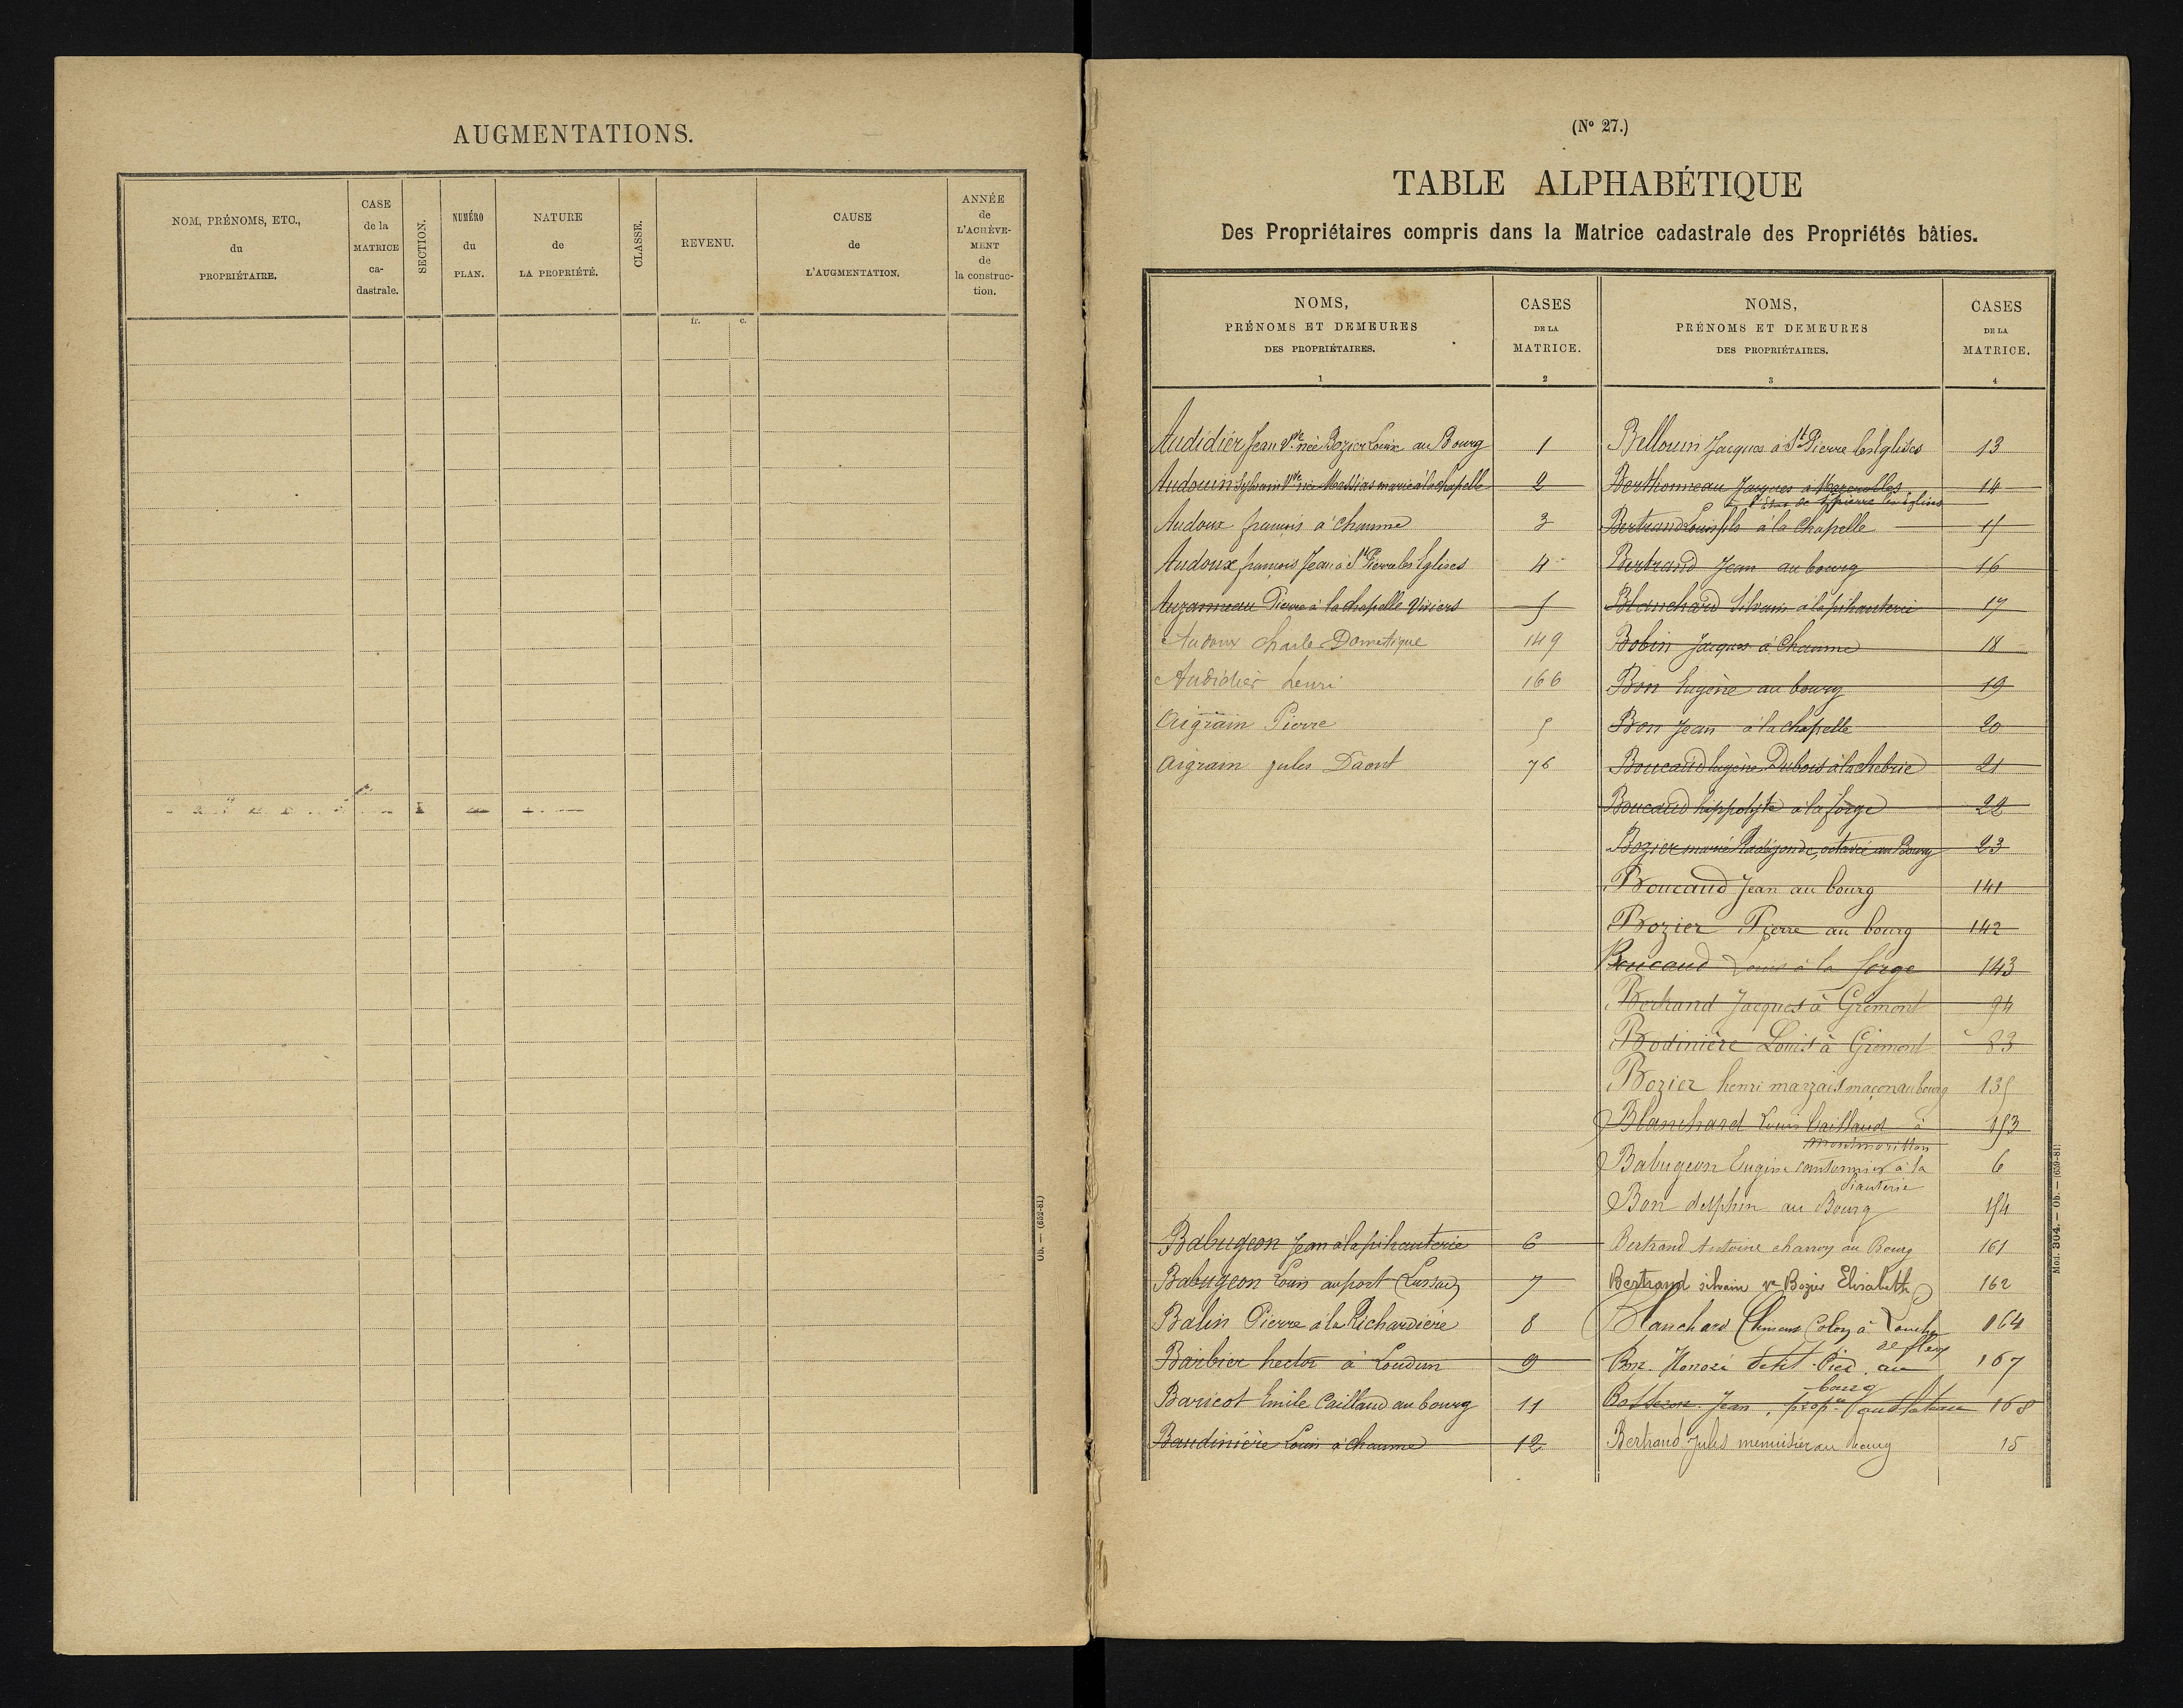 AUGMENTATIONS.
NOM, PRÉNOMS, ETC.,
du
PROPRIÉTAIRE.
CASE
de la
MATRICE
ca-
dastrale.
SECTION.
NUMÉRO
du
PLAN.
NATURE
de
LA PROPRIÉTÉ.
CLASSE.
REVENU.
CAUSE
de
L'AUGMENTATION.
ANNÉE
de
L'ACHÈVE-
MENT
de
la construc-
tion.
fr. c.
Ob. — (652-81)
(No 27.)
TABLE ALPHABÉTIQUE
Des Propriétaires compris dans la Matrice cadastrale des Propriétés bâties.
NOMS,
PRÉNOMS ET DEMEURES
DES PROPRIÉTAIRES.
1
CASES
DE LA
MATRICE.
2
NOMS,
PRÉNOMS ET DEMEURES
DES PROPRIÉTAIRES.
3
CASES
DE LA
MATRICE.
4
Audidier Jean Vve née Bozier Louise au Bourg 1
Audouin Sylvain Vve née Massias marie à la chapelle 2
Audoux françois à chaume 3
Audoux françois Jean à St Pierre les Eglises 4
Auzanneau Pierre à la chapelle Viviers 5
Audoux Charle Domestique 149
Audidier henri 166
Aigrain Pierre 5
Aigrain jules Daout 76
Babugeon Jean à la pihauterie 6
Babugeon Louis au port (Lussac) 7
Balin Pierre à la Richardière 8
Barbier hector à Loudun 9
Baricot Emile Caillaud au bourg 11
Baudinière Louis à chaume 12
Bellouin Jacques à St Pierre les Eglises 13
Berthonneau Jacques à Mazerolles 14
de St pierre les Eglises
Bertrand Louis fils à la Chapelle 15
Bertrand Jean au bourg 16
Blanchard Silvain à la pihauterie 17
Bobin Jacques à Chaume 18
Bon Eugène au bourg 19
Bon Jean à la chapelle 20
Boucaud Eugène Dubois à la chebrie 21
Boucaud hippolyte à la forge 22
Bozier marie Radégonde, octavie au Bourg 23
Boucaud Jean au bourg 141
Bozier Pierre au bourg 142
Boucaud Louis à la forge 143
Bertrand Jacques à Grémont 94
Bodinière Louis à Grémont 83
Bozier henri marzais maçon au bourg 135
Blanchard Louis Caillaud à 153
Montmorillon
Babugeon Eugène cantonnier à la 6
Piauterie
Bon delphin au Bourg 154
Bertrand Antoine charron au Bourg 161
Bertrand silvain ve Bozier Elisabeth 162
Blanchard Clément Colon à 164
de fleix
Bon Honoré Petit-Pied au 167
bourg
Jean, propre 168
Bertrand Jules menuisier au bourg 15
Mod. 304. — Ob. — (659-81)